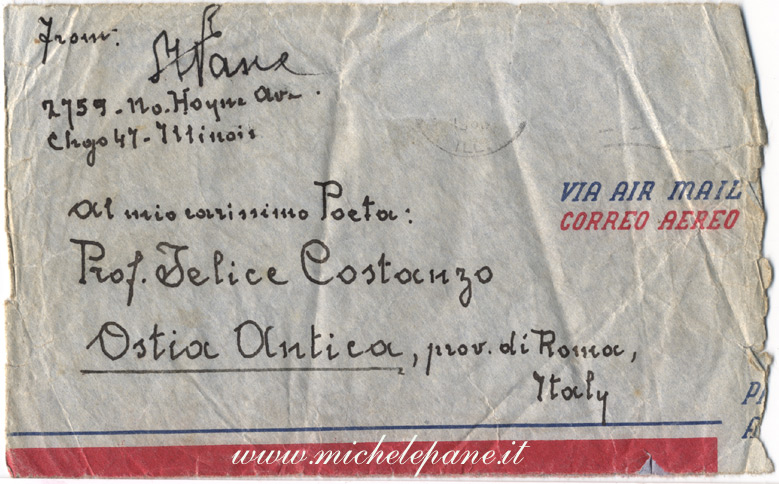 From:
MPane
2759-No. Hoyne Av.
Chgo 47-Illinois
VIA AIR MAIL
CORREO AEREO
Al mio carissimo Poeta:
Prof. Felice Costanzo
Ostia Antica, prov. di Roma,
Italy
www.michelepane.it